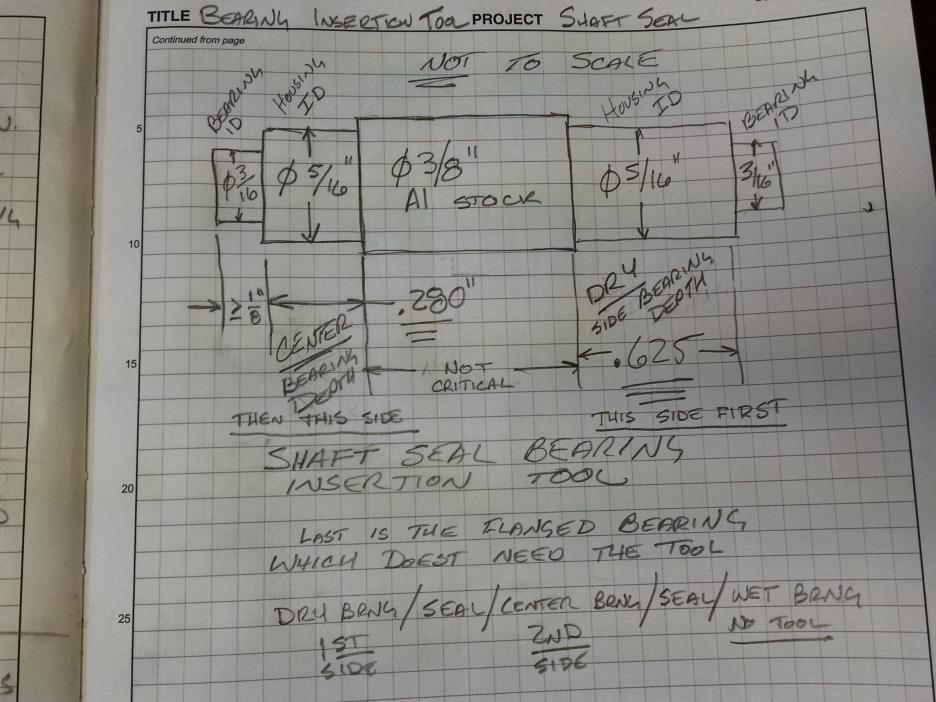 TITLE BEARING INSERTION TOOL PROJECT SHAFT SEAL
Continued from page
NOT TO SCALE
BEARING ID
HOUSING ID
HOUSING ID
BEARING ID
5
φ 3/16
φ 5/16"
φ 3/8"
Al STOCK
φ 5/16"
3/16"
10
≥ 1/8"
.280"
DRY
SIDE BEARING
DEPTH
CENTER
BEARING
DEPTH
.625
15
NOT
CRITICAL
THEN THIS SIDE
THIS SIDE FIRST
SHAFT SEAL BEARING
INSERTION TOOL
20
LAST IS THE FLANGED BEARING
WHICH DOEST NEED THE TOOL
DRY BRNG/SEAL/CENTER BRNG/SEAL/WET BRNG
25
1ST
SIDE
2ND
SIDE
NO TOOL